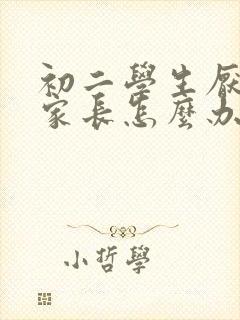 初二學生厭
家長怎麼办
小哲學